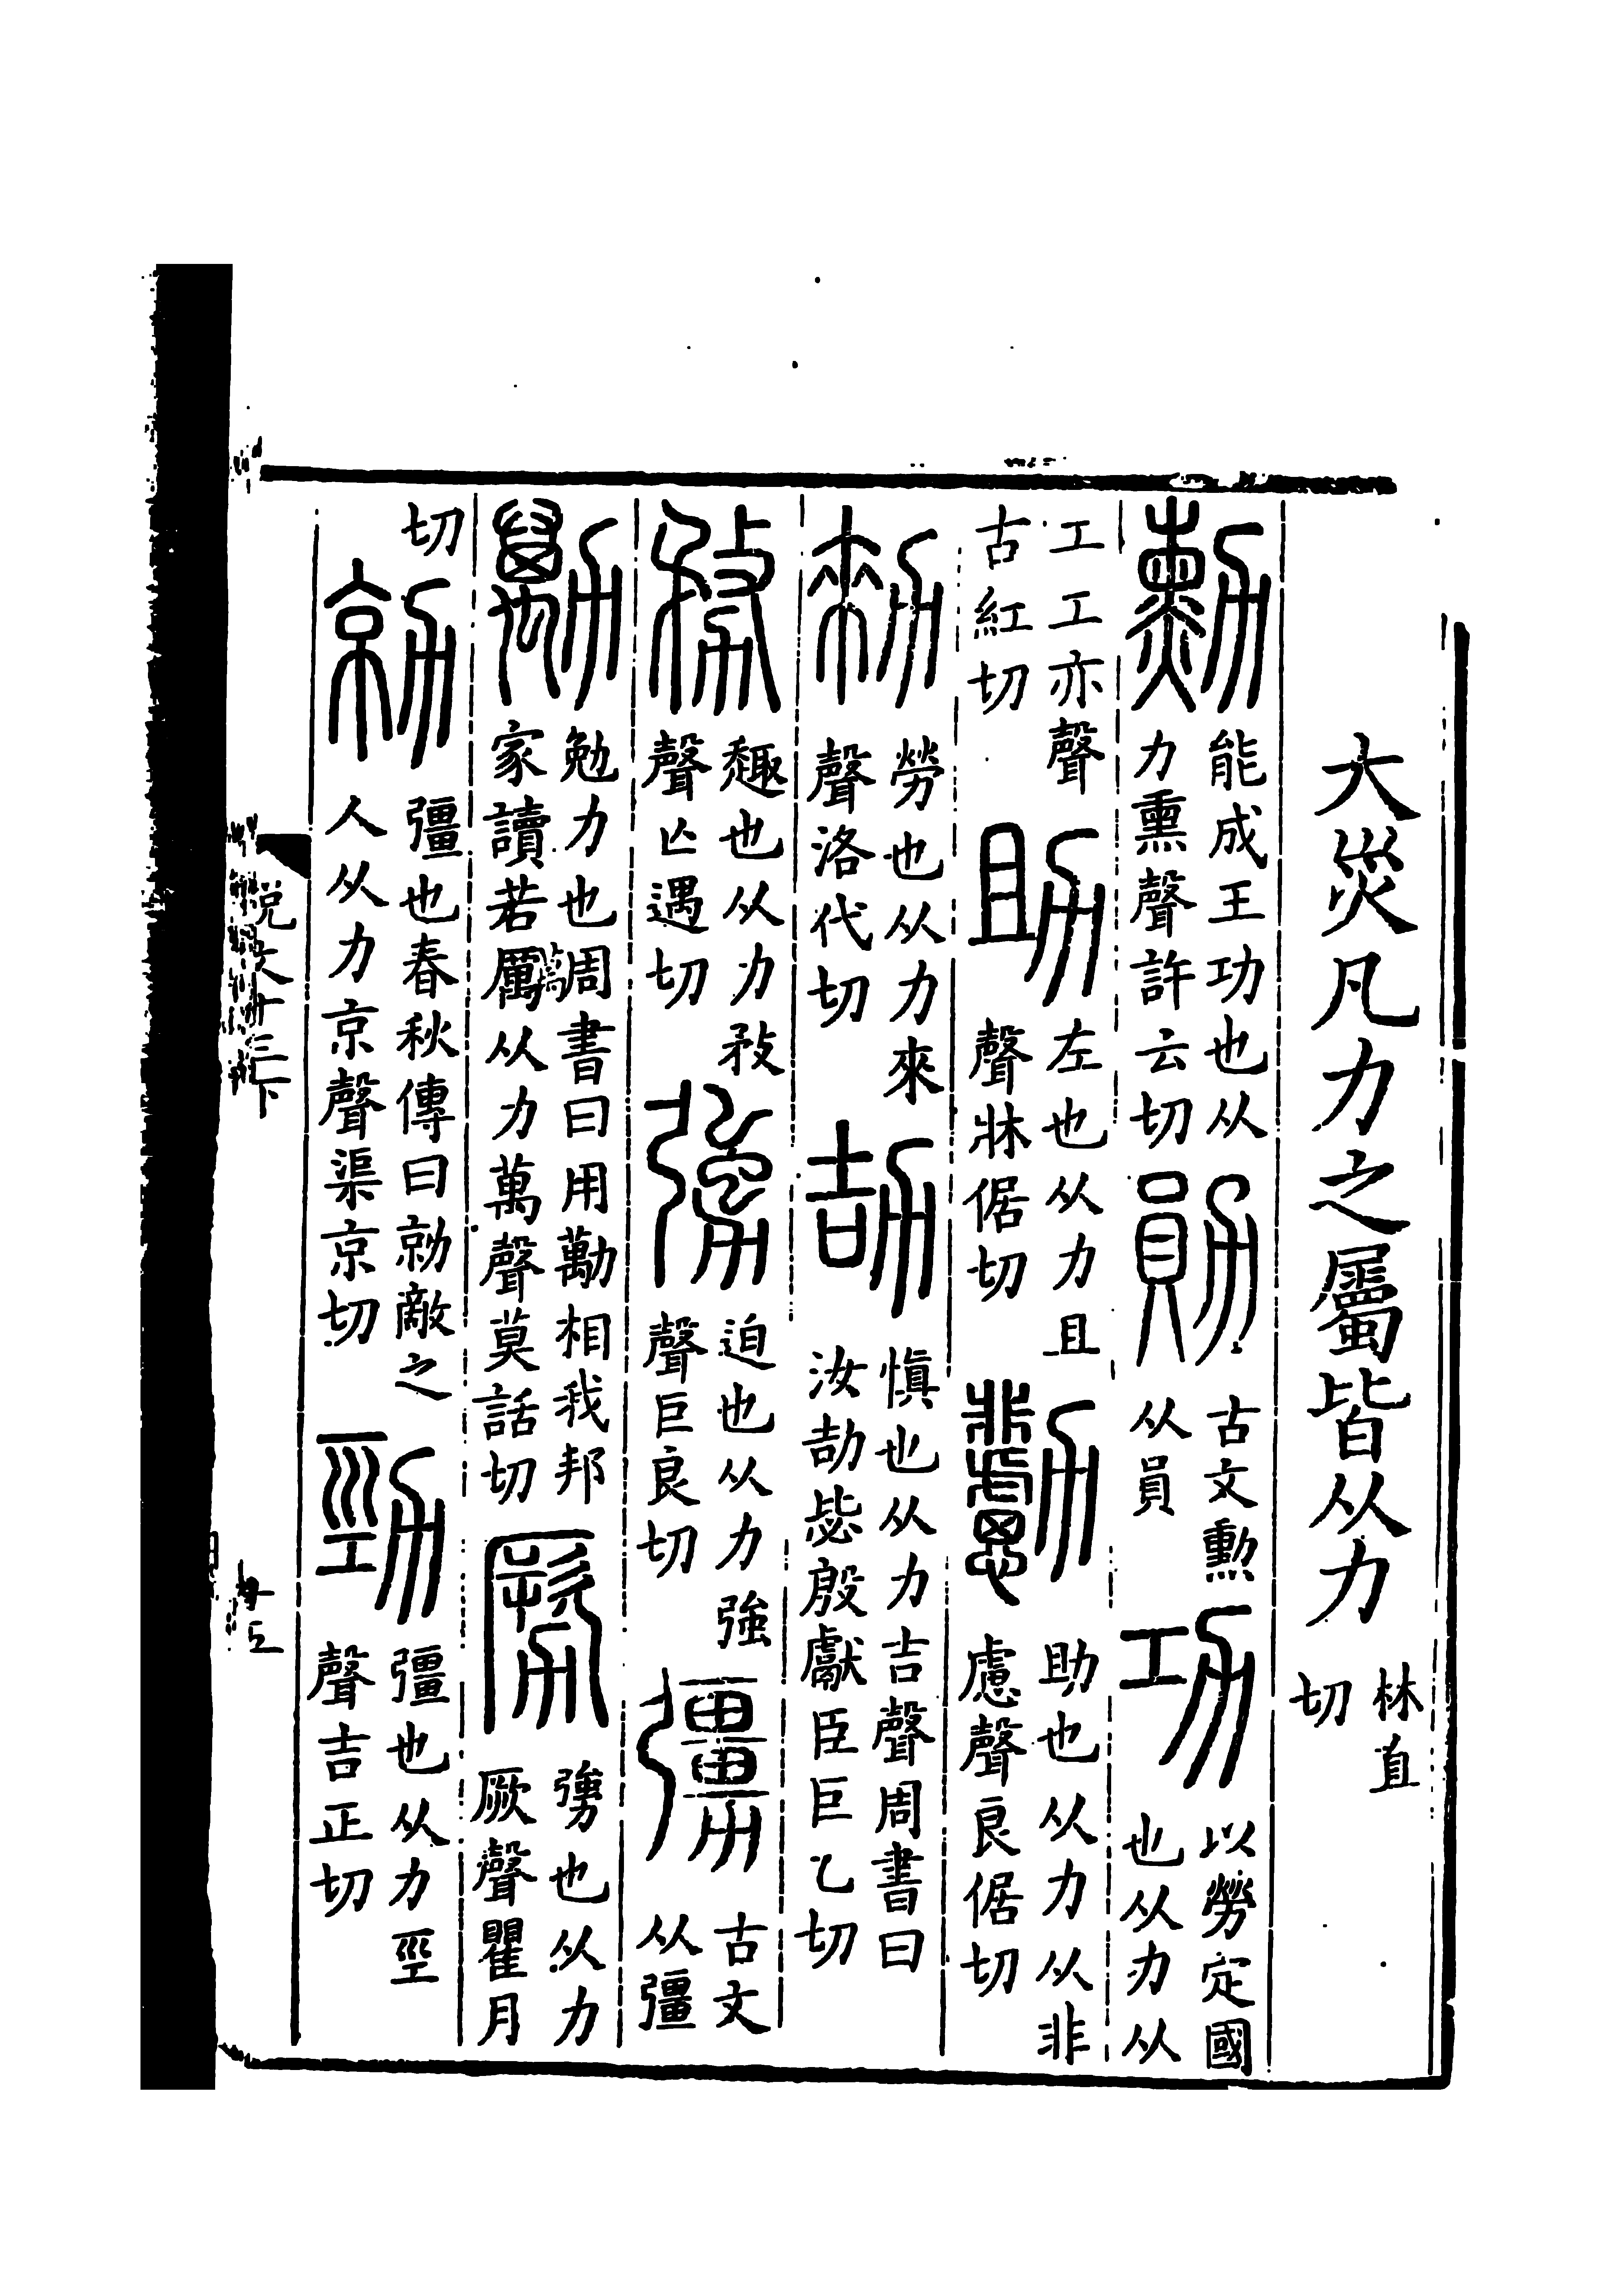 大災凡力之屬皆从力林直切
勳能成王功也从力熏聲許云切勛古文勳从員功以勞定國也从力从
工工亦聲古紅切助左也从力且聲牀倨切勴助也从力从非慮聲良倨切
勑勞也从力來聲洛代切劼慎也从力吉聲周書曰汝劼毖殷獻臣巨乙切
務趣也从力敄聲亾遇切勥迫也从力強聲巨良切𠣃古文从彊
勱勉力也周書曰用勱相我邦家讀若厲从力萬聲莫話切勶勥也从力厥聲瞿月
切勍彊也春秋傳曰勍敵之人从力京聲渠京切勁彊也从力巠聲吉正切
說文十三下